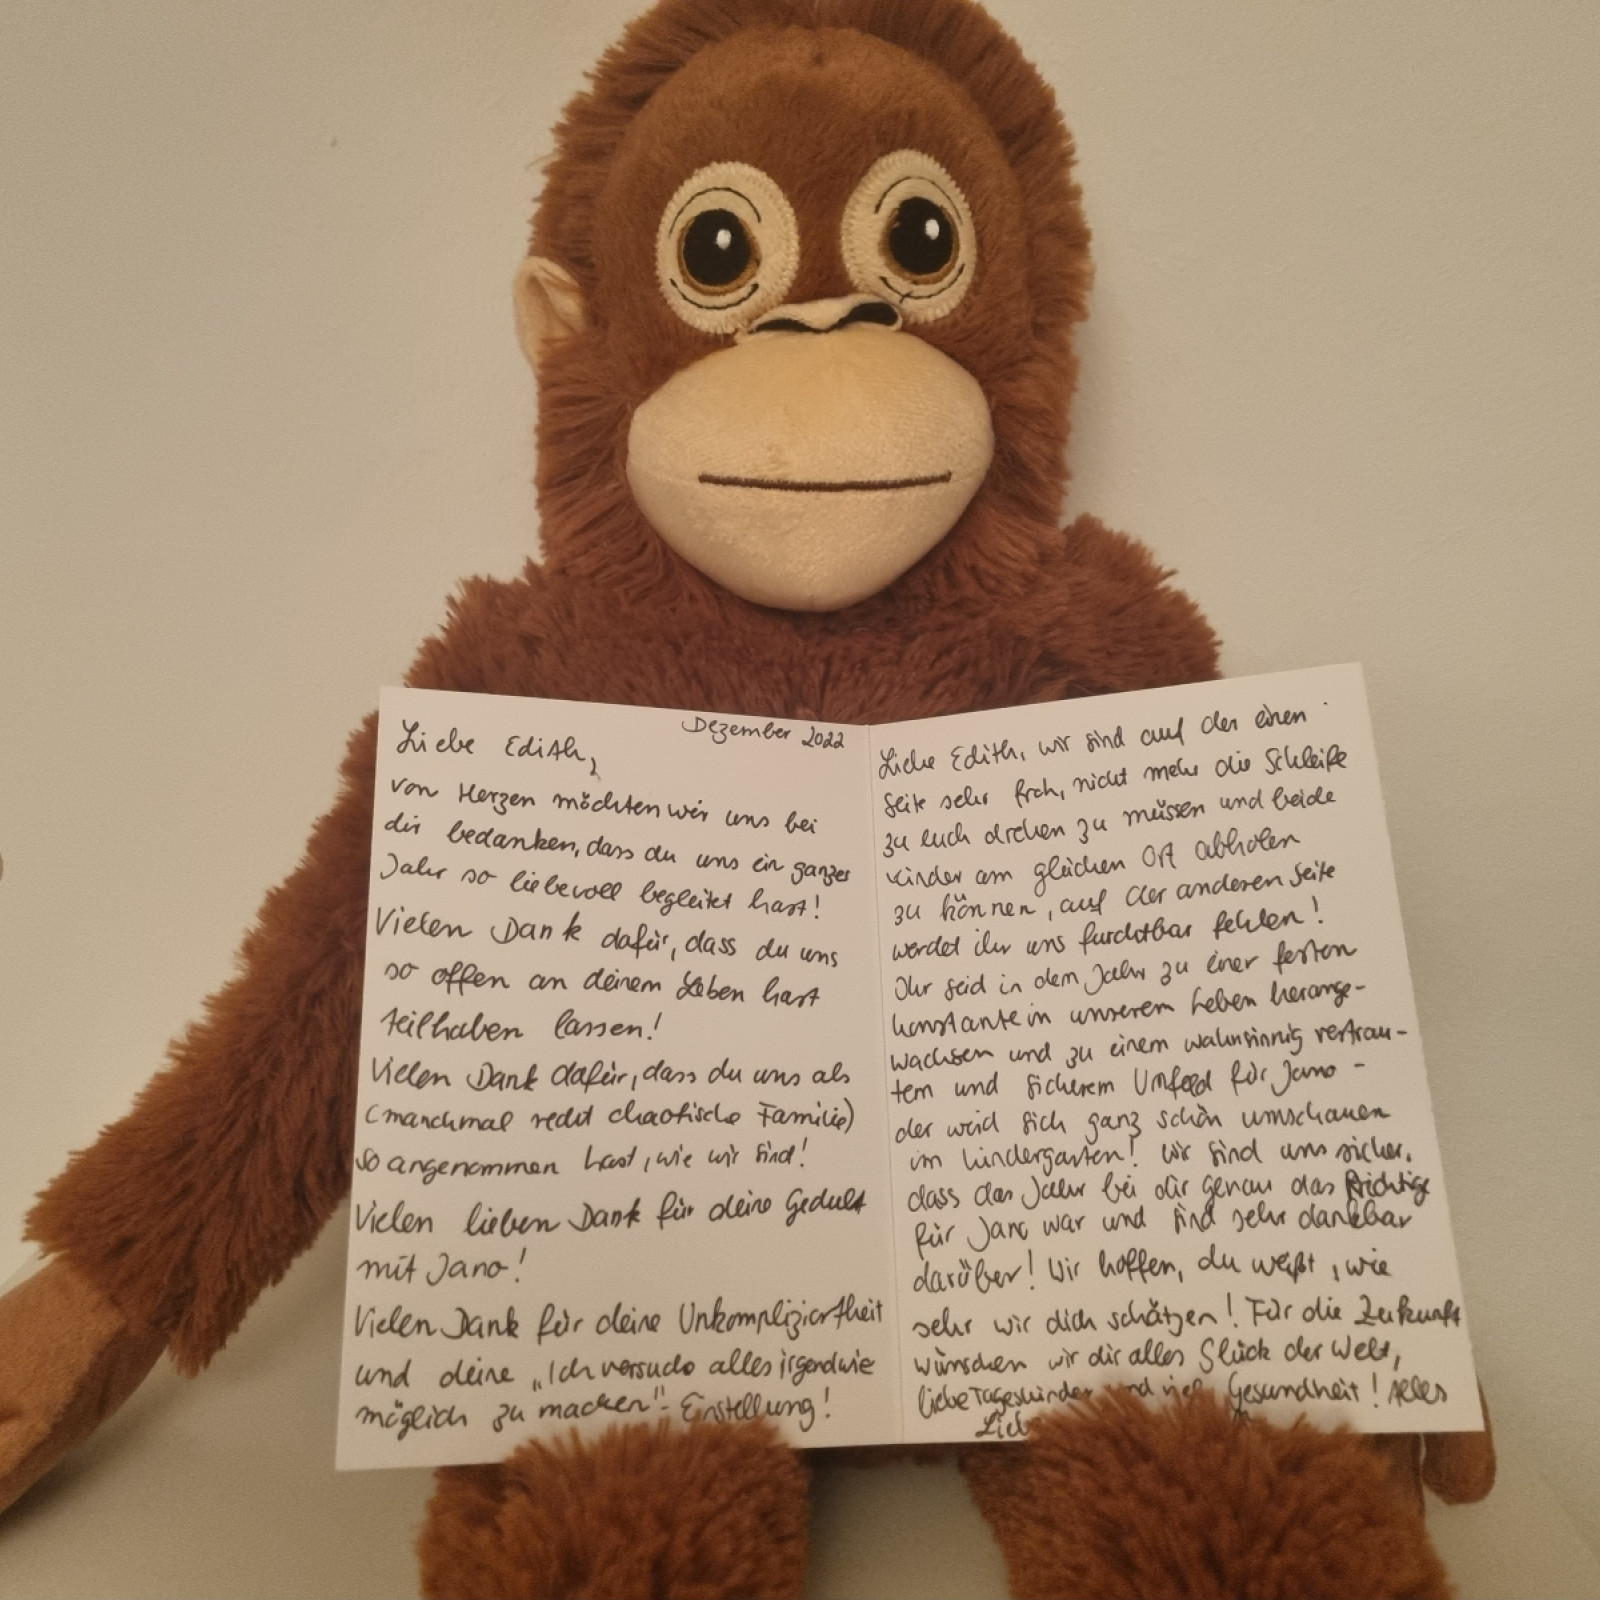 Dezember 2022
Liebe Edith,
von Herzen möchten wir uns bei
dir bedanken, dass du uns ein ganzes
Jahr so liebevoll begleitet hast!
Vielen Dank dafür, dass du uns
so offen an deinem Leben hast
teilhaben lassen!
Vielen Dank dafür, dass du uns als
(manchmal recht chaotische Familie)
so angenommen hast, wie wir sind!
Vielen lieben Dank für deine Geduld
mit Jano!
Vielen Dank für deine Unkompliziertheit
und deine „Ich versuche alles irgendwie
möglich zu machen"- Einstellung!
Liebe Edith, wir sind auf der einen
Seite sehr froh, nicht mehr die Schleife
zu euch drehen zu müssen und beide
Kinder am gleichen Ort abholen
zu können, auf der anderen Seite
werdet ihr uns furchtbar fehlen!
Ihr seid in dem Jahr zu einer festen
Konstante in unserem Leben herange-
wachsen und zu einem wahnsinnig vertrau-
tem und sicherem Umfeld für Jano -
der wird sich ganz schön umschauen
im Kindergarten! Wir sind uns sicher,
dass das Jahr bei dir genau das Richtige
für Jano war und sind sehr dankbar
darüber! Wir hoffen, du weißt, wie
sehr wir dich schätzen! Für die Zukunft
wünschen wir dir alles Glück der Welt,
liebe Tageskinder und viel Gesundheit! Alles